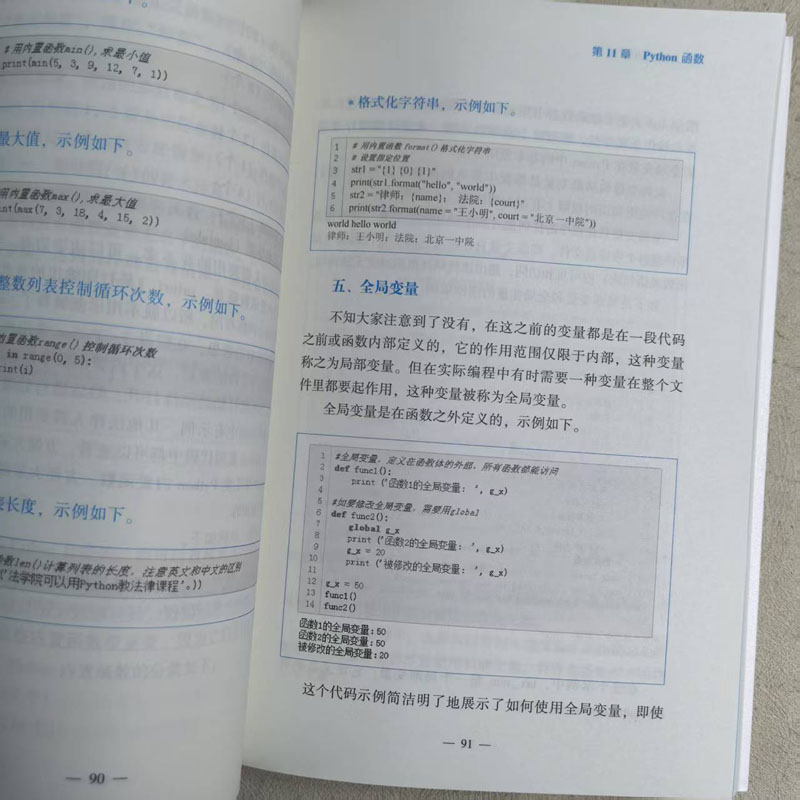 # 用内置函数min(),求最小值
print(min(5, 3, 9, 12, 7, 1))
最大值，示例如下。
用内置函数max(),求最大值
int(max(7, 3, 18, 4, 15, 2))
整数列表控制循环次数，示例如下。
内置函数range()控制循环次数
in range(0, 5):
rint(i)
长度，示例如下。
函数len()计算列表的长度，注意英文和中文的区别
('法学院可以用Python教法律课程'。))
— 90 —
第 11 章 Python 函数
• 格式化字符串，示例如下。
1 # 用内置函数 format()格式化字符串
2 # 设置指定位置
3 str1 ="{1} {0} {1}"
4 print(str1.format("hello", "world"))
5 str2 ="律师：{name}； 法院：{court}"
6 print(str2.format(name = "王小明", court = "北京一中院"))
world hello world
律师：王小明；法院：北京一中院
五、全局变量
不知大家注意到了没有，在这之前的变量都是在一段代码
之前或函数内部定义的，它的作用范围仅限于内部，这种变量
称之为局部变量。但在实际编程中有时需要一种变量在整个文
件里都要起作用，这种变量被称为全局变量。
全局变量是在函数之外定义的，示例如下。
1 #全局变量，定义在函数体的外部，所有函数都能访问
2 def func1():
3 print ('函数1的全局变量： ', g_x)
4
5 #如要修改全局变量，需要用global
6 def func2():
7 global g_x
8 print ('函数2的全局变量： ', g_x)
9 g_x = 20
10 print ('被修改的全局变量： ', g_x)
11
12 g_x = 50
13 func1()
14 func2()
函数1的全局变量:50
函数2的全局变量:50
被修改的全局变量:20
这个代码示例简洁明了地展示了如何使用全局变量，即使
— 91 —